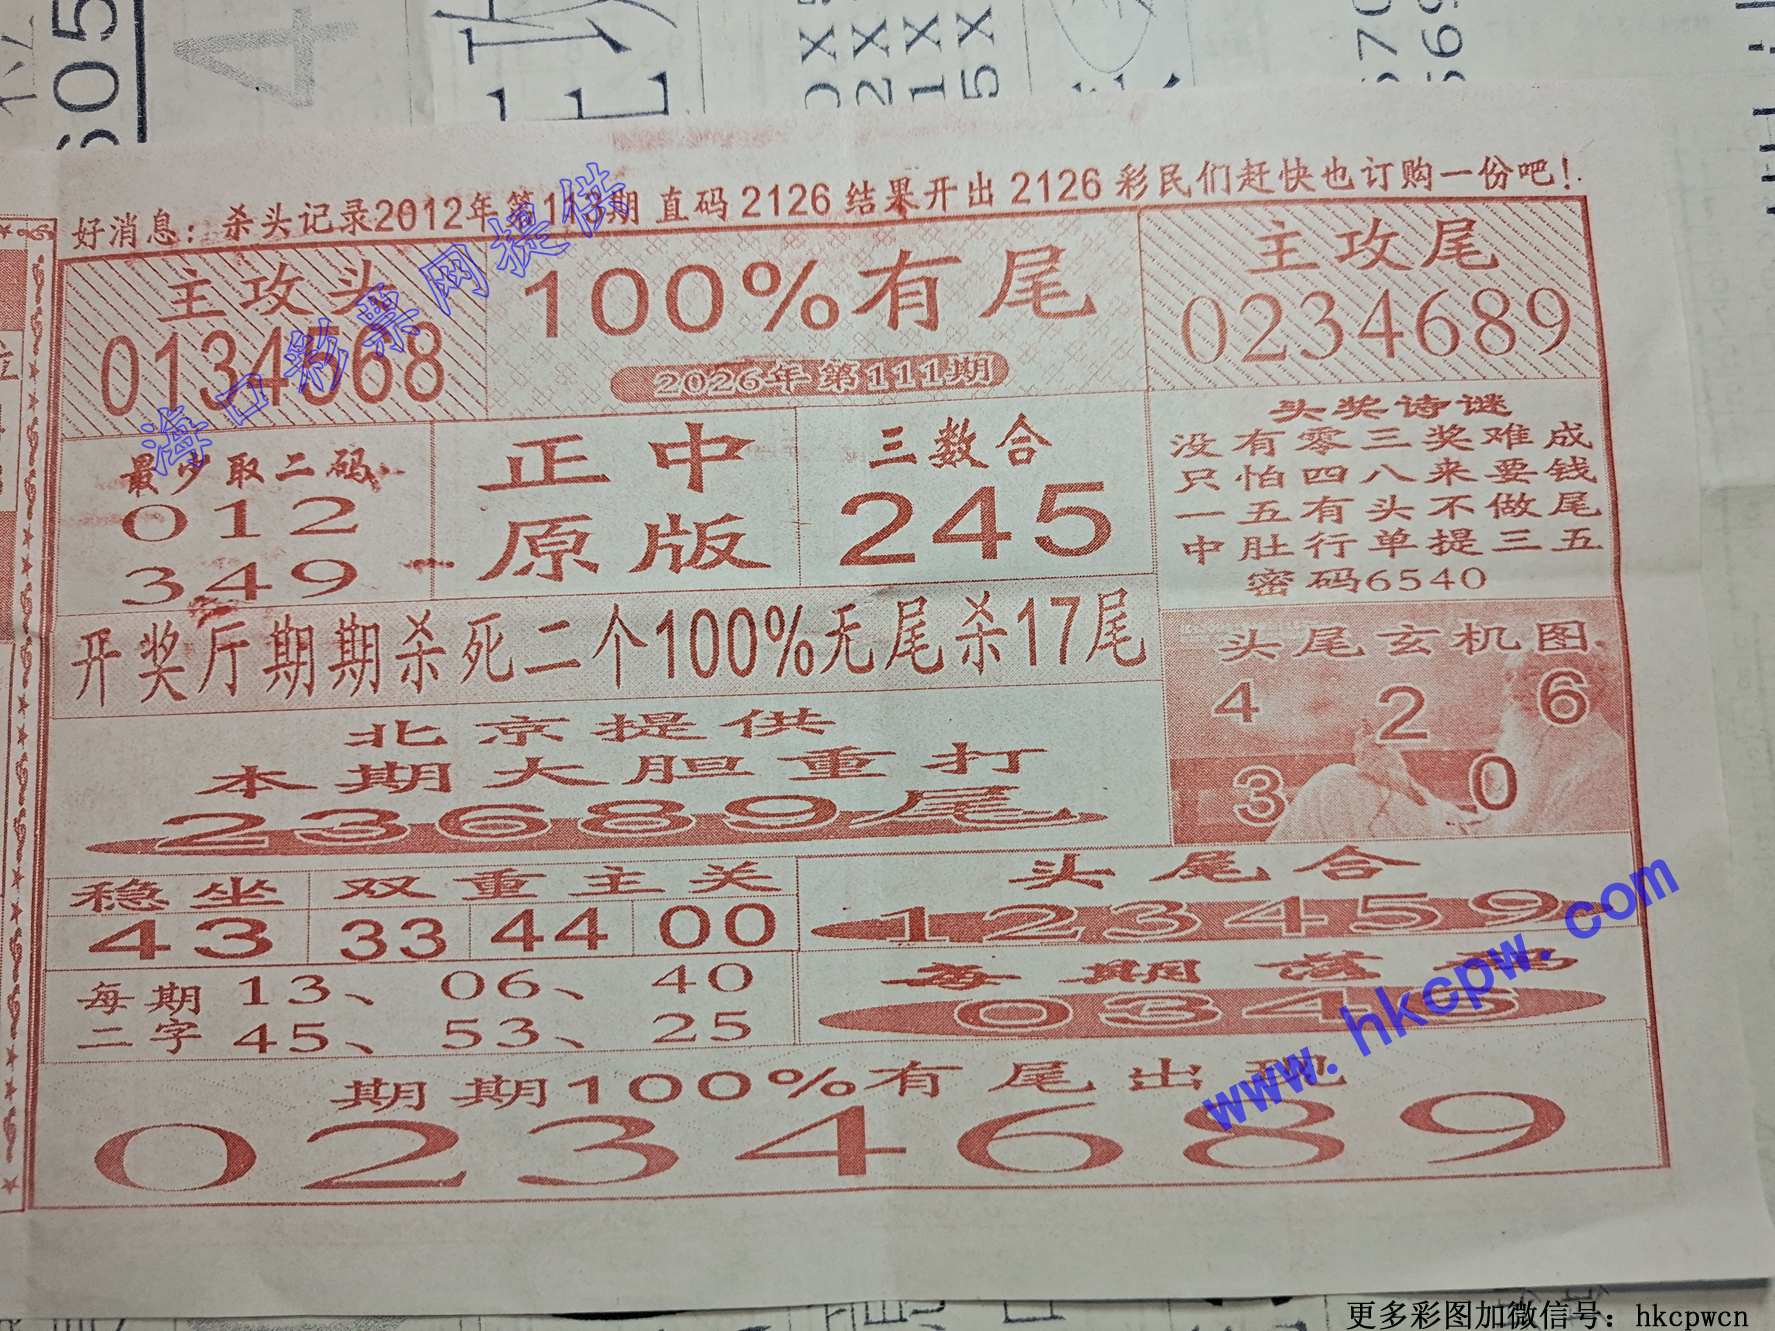 好消息：杀头记录2012年第113期 直码 2126 结果开出 2126 彩民们赶快也订购一份吧！
主攻头
0134568
100%有尾
2026年第111期
主攻尾
0234689
最少取二码
012
349
正中
原版
三数合
245
头奖诗谜
没有零三奖难成
只怕四八来要钱
一五有头不做尾
中肚行单提三五
密码6540
开奖厅期期杀死二个100%无尾杀17尾
头尾玄机图
4 2 6
3 0
北京提供
本期大胆重打
23689尾
稳坐
43
双重主关
33 44 00
头尾合
123459
每期
二字
13、 06、 40
45、 53、 25
每期
期期100%有尾出现
0234689
海口彩票网提供
www.hkcpw.com
更多彩图加微信号：hkcpwcn